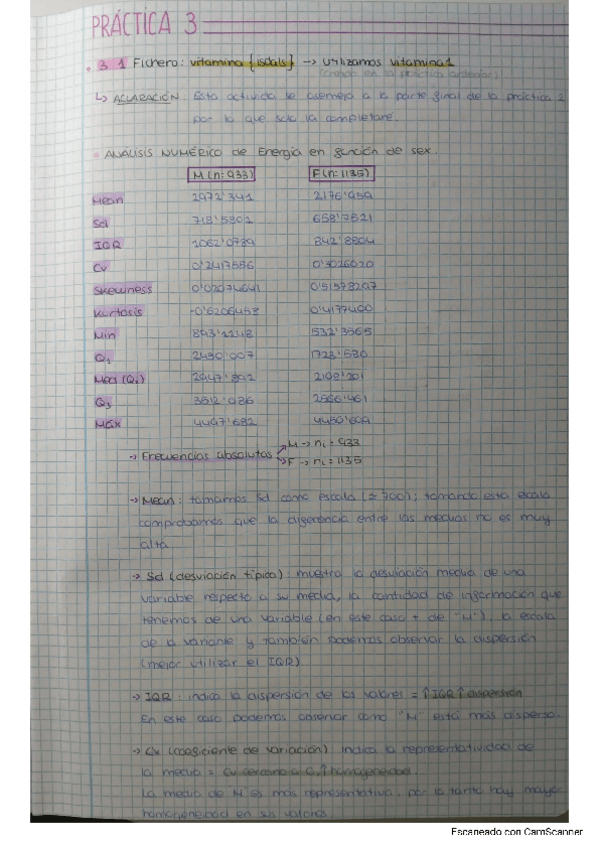 PRÁCTICA 3
3.1 Fichero: vitamina {isdals} → utilizamos vitamina1
(creado en la práctica anterior)
↳ ACLARACIÓN. Esta actividad se asemeja a la parte final de la práctica 2
por lo que solo la completaré.
ANÁLISIS NUMÉRICO de Energía en función de sex.
M (n: 933) F (n: 1135)
Mean 2972'341 2176'959
Sd 718'5802 658'7521
IQR 1062'0789 842'8804
CV 0'2417556 0'3026020
Skewness 0'02074641 0'51578297
Kurtosis -0'6206453 0'4177400
Min 893'1148 532'3565
Q1 2450'007 1723'580
Med (Q2) 2947'892 2108'201
Q3 3512'086 2566'461
Max 4497'682 4450'609
→ Frecuencias absolutas M → ni = 933
F → ni = 1135
→ Mean: tomamos Sd como escala (≈ 700); tomando esta escala
comprobamos que la diferencia entre las medias no es muy
alta
→ Sd (desviación típica): muestra la desviación media de una
variable respecto a su media, la cantidad de información que
tenemos de una variable (en este caso + de "M"), la escala
de la variable y también podemos observar la dispersión
(mejor utilizar el IQR)
→ IQR: indica la dispersión de los valores = ↑IQR ↑dispersión
En este caso podemos observar como "M" está más disperso.
→ CV (coeficiente de variación) indica la representatividad de
la media = CV cercano a 0, ↑homogeneidad.
La media de M es más representativa, por lo tanto hay mayor
homogeneidad en sus valores.
Escaneado con CamScanner